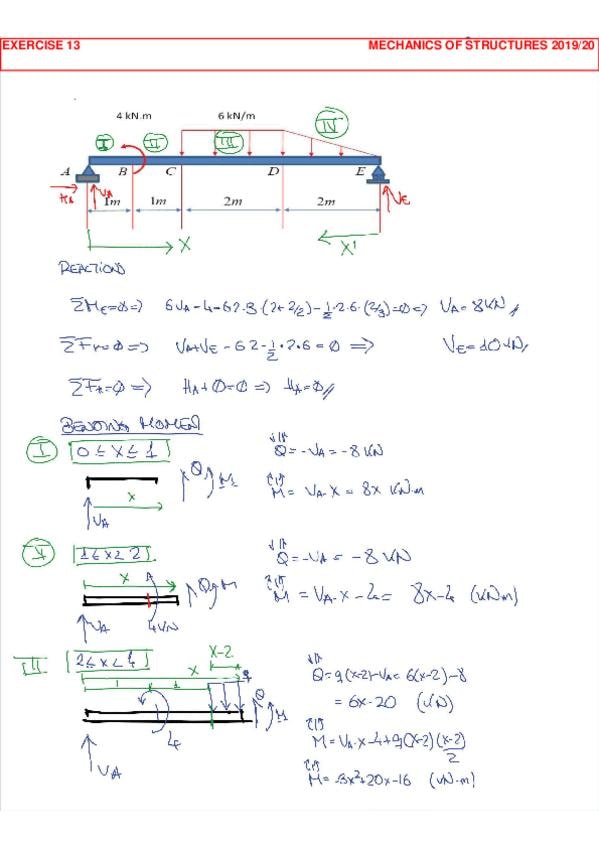 EXERCISE 13 MECHANICS OF STRUCTURES 2019/20
4 kN.m 6 kN/m
I II III IV
A B C D E
HA VA 1m 1m 2m 2m VE
X X'
REACTIONS
ΣME=0=> 6VA-4-6·2·3·(2+2/2)-½·2·6·(2/3)=0=> VA=8kN
VA+VE-6·2-½·2·6=0 => VE=10kN
=> HA+0=0 => HA=0//
BENDING MOMEN
I 0≤X≤1 Q=-VA=-8KN
Q M
X M= VA·X = 8X KN·m
VA
1≤X≤2 Q=-VA= -8KN
X Q M M = VA·X-4= 8X-4 (kNm)
VA 4KN
III 2≤X≤4 X-2
X q Q=q(X-2)-VA= 6(X-2)-8
1 1 Q = 6X-20 (kN)
M M=VA·X-4+q(X-2)(X-2)/2
4
VA M=-3X²+20X-16 (kN·m)